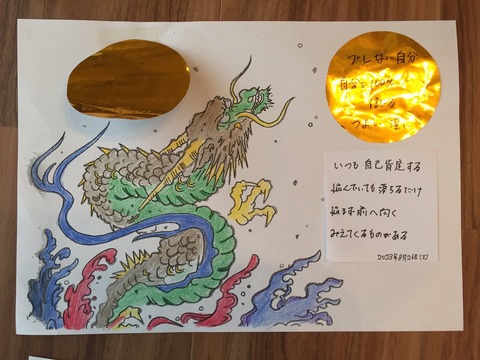 ブレない自分
自分を100%
信じる
つよい
いつも 自己肯定する
悩んでいても 落ちるだけ
悩まず前へ向く
みえてくるものがある
2023年8月26日(土)